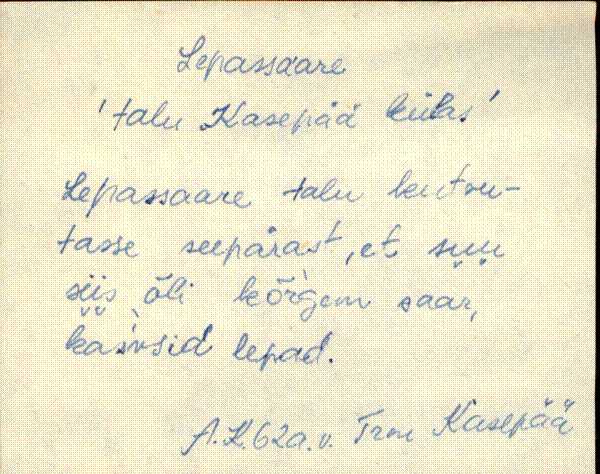 Lepassaare
'talu Kasepää külas'
Lepassaare talu kutsu-
tasse seepärast, et suu
siis õli kõrgem saar,
kasvsid lepad.
A.K. 62 a. v. Trm Kasepää